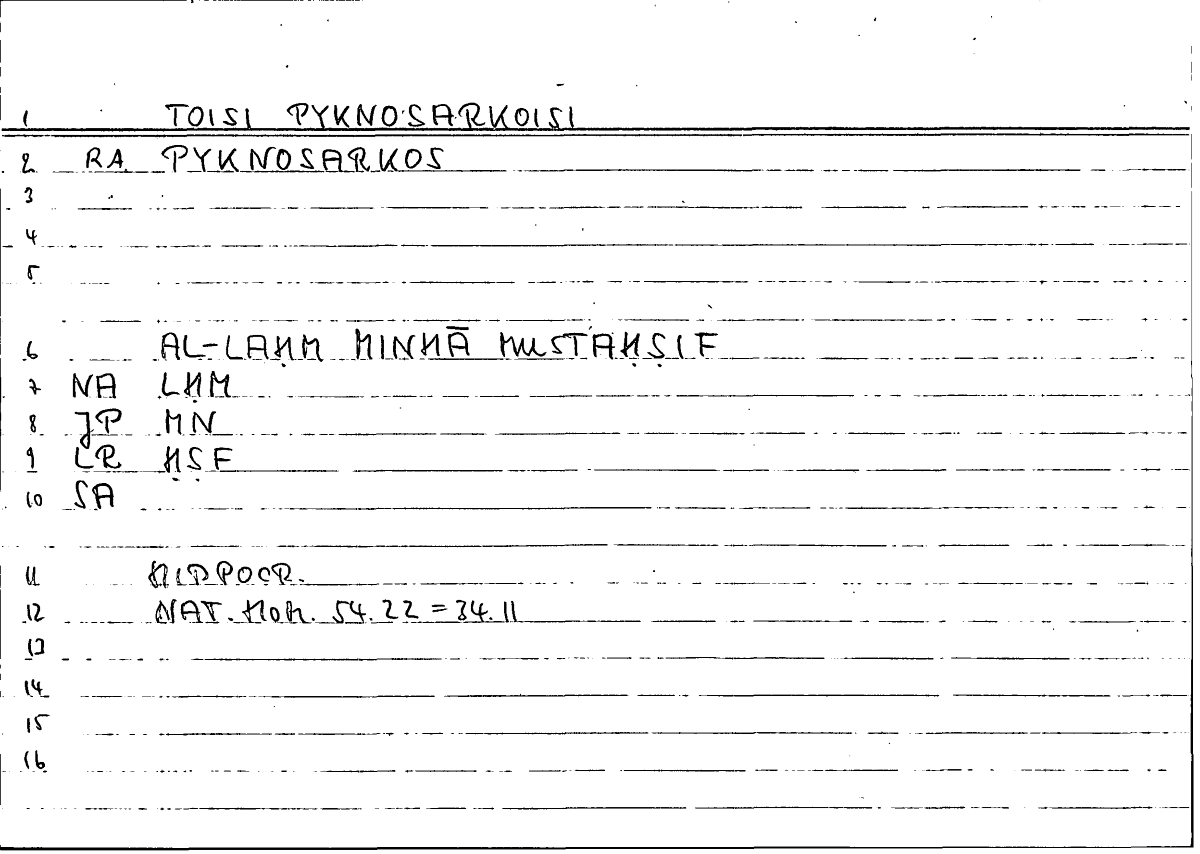 1 TOISI PYKNOSARKOISI
2 RA PYKNOSARKOS
3
4
5
6 AL-LAḤM MINHĀ MUSTAḤṢIF
7 NA LḤM
8 JP MN
9 LR ḤṢF
10 SA
11 HIPPOCR.
12 NAT. HOM. 54.22 = 34.11
13
14
15
16